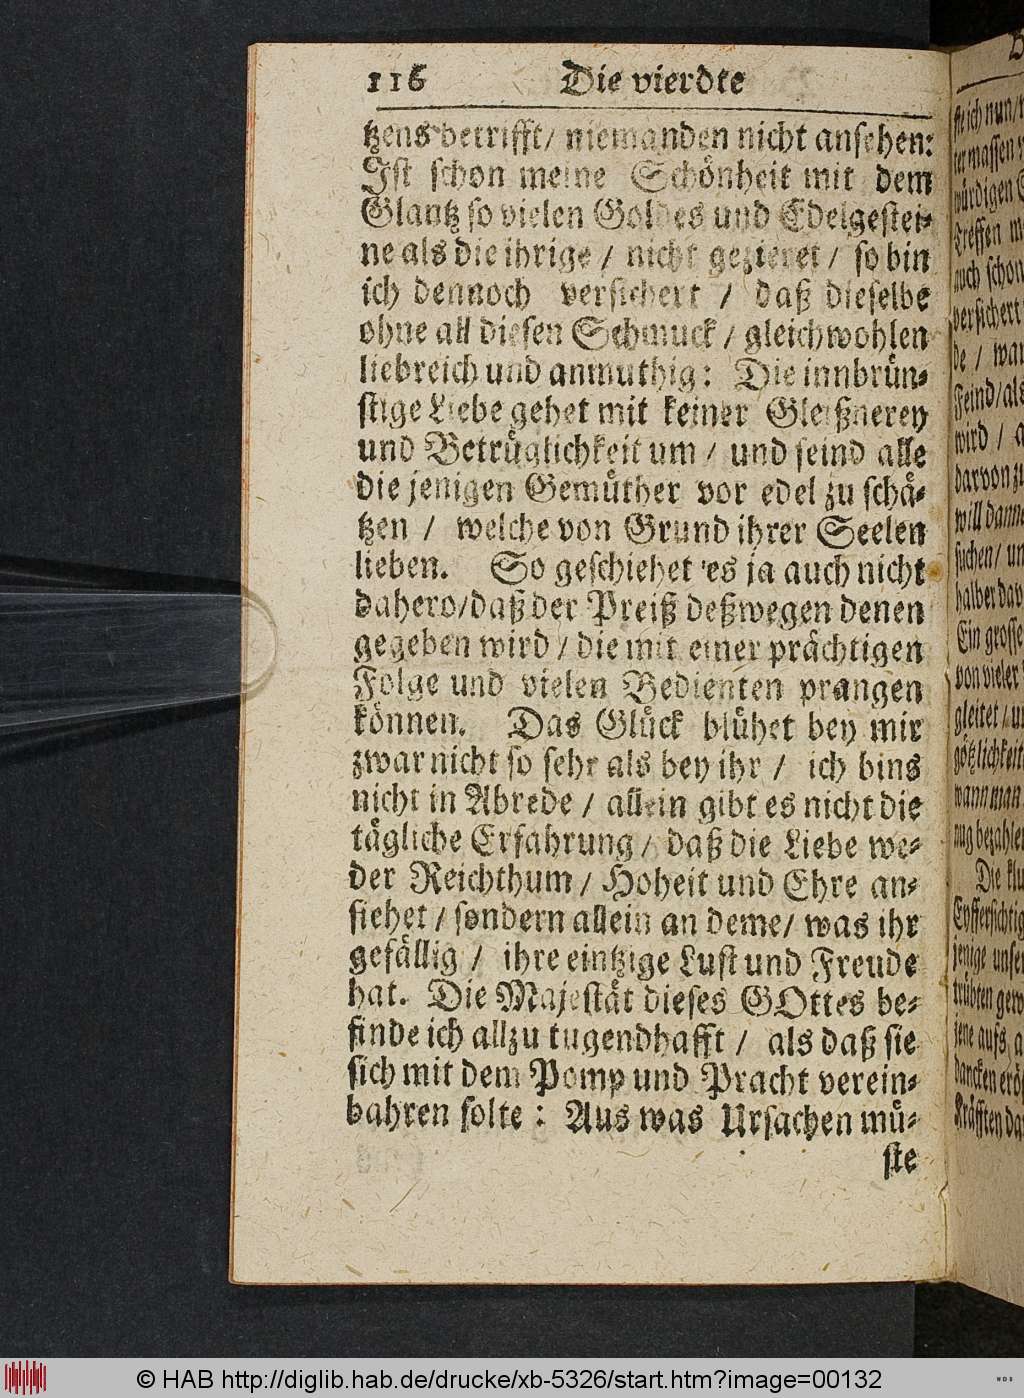 116 Die vierdte
tzens betrifft/ niemanden nicht ansehen:
Ist schon meine Schönheit mit dem
Glantz so vielen Goldes und Edelgestei-
ne als die ihrige / nicht gezieret / so bin
ich dennoch versichert / daß dieselbe
ohne all diesen Schmuck / gleichwohlen
liebreich und anmuthig: Die innbrün-
stige Liebe gehet mit keiner Gleißnerey
und Betrüglichkeit um / und seind alle
die jenigen Gemüther vor edel zu schä-
tzen / welche von Grund ihrer Seelen
lieben. So geschiehet es ja auch nicht
dahero/daß der Preiß deßwegen denen
gegeben wird / die mit einer prächtigen
Folge und vielen Bedienten prangen
können. Das Glück blühet bey mir
zwar nicht so sehr als bey ihr / ich bins
nicht in Abrede / allein gibt es nicht die
tägliche Erfahrung / daß die Liebe we-
der Reichthum / Hoheit und Ehre an-
siehet / sondern allein an deme/ was ihr
gefällig / ihre eintzige Lust und Freude
hat. Die Majestät dieses GOttes be-
finde ich allzu tugendhafft / als daß sie
sich mit dem Pomp und Pracht verein-
bahren solte : Aus was Ursachen mü-
ste
ste ich nun/
ter massen
würdigen
treffen
auch schon
versichert
de / 
Feind/als
wird /
darvon zu
will
suchen/
halber
Ein grosse
von vieler
gleitet /
götzlichkeit
wann man
nug bezahlen
Die
Eyffersichtig
jenige
trübten
jene aufs
dancken
Kräfften
© HAB http://diglib.hab.de/drucke/xb-5326/start.htm?image=00132